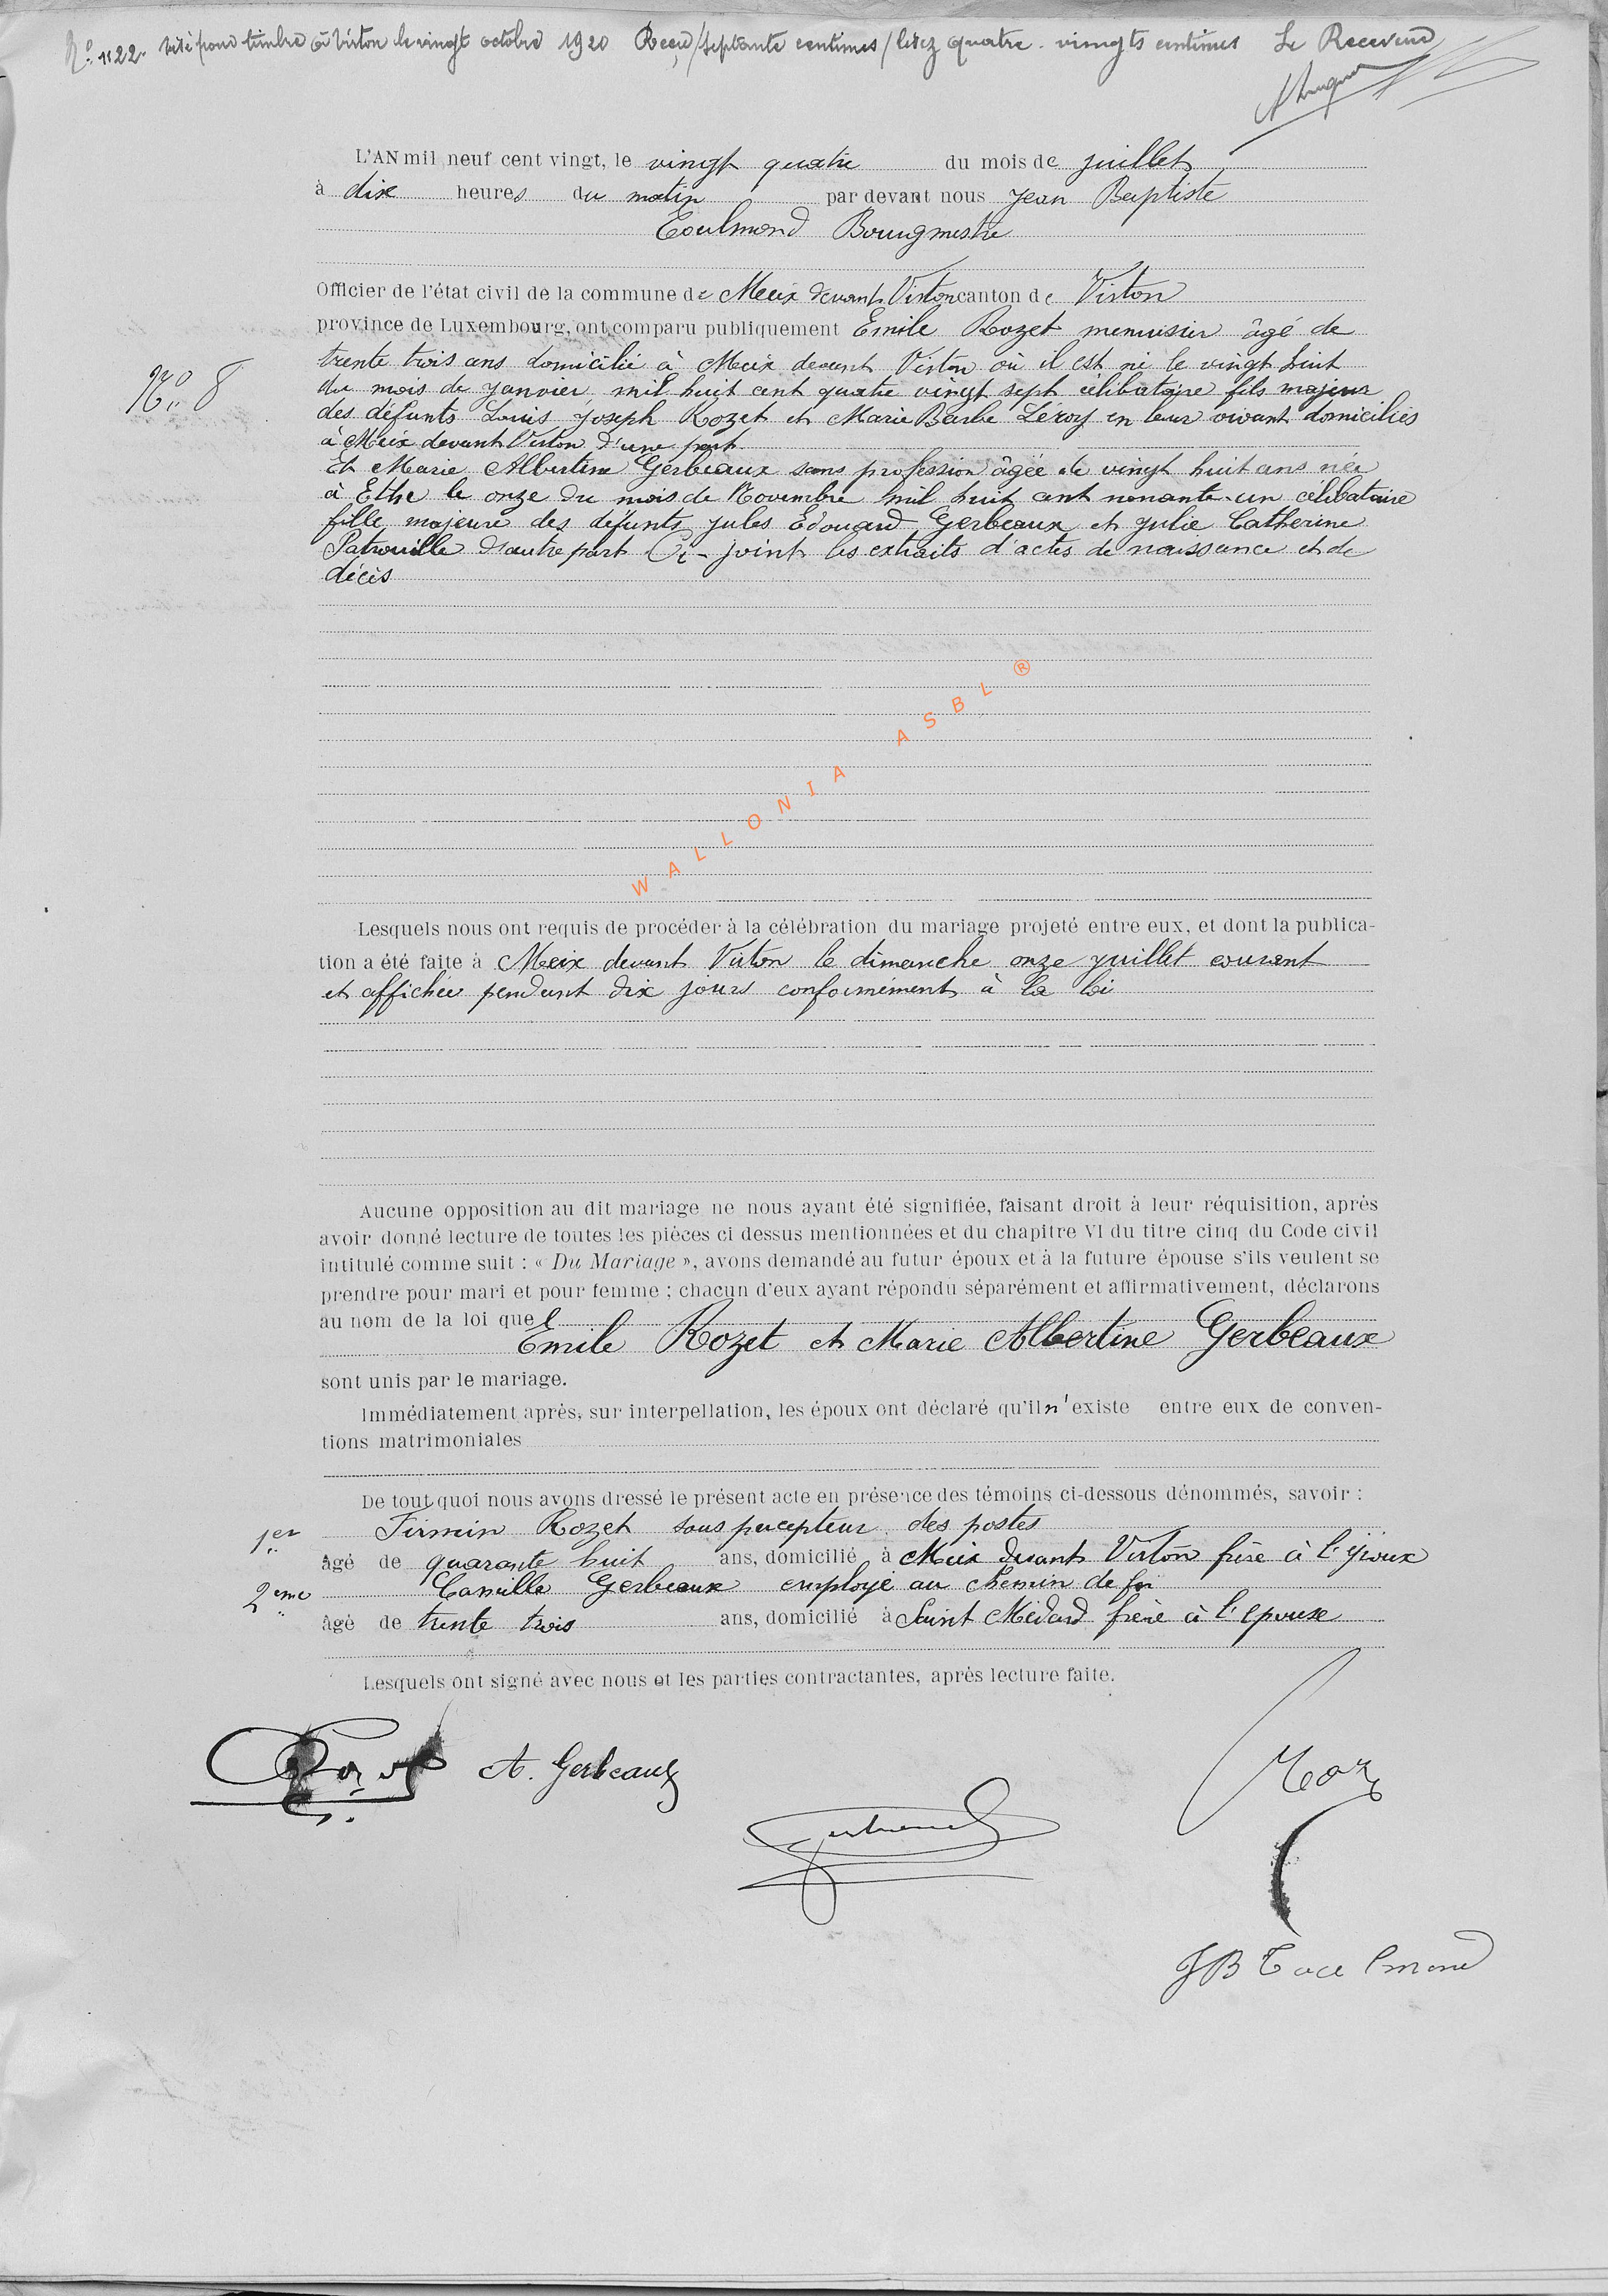 No. 1122. Visé pour timbre à Virton le vingt octobre 1920 Reçu /septante centimes/ lisez quatre-vingts centimes Le Receveur
L'AN mil neuf cent vingt, le vingt quatre du mois de juillet
à dix heures du matin par devant nous Jean Baptiste
Toulmond Bourgmestre
Officier de l'état civil de la commune de Meix devant Virton canton de Virton
province de Luxembourg, ont comparu publiquement Emile Rozet menuisier âgé de
trente trois ans domicilié à Meix devant Virton où il est né le vingt huit
No. 8
du mois de janvier mil huit cent quatre vingt sept célibataire fils majeur
des défunts Louis Joseph Rozet et Marie Barbe Léroy en leur vivant domiciliés
à Meix devant Virton d'une part
Et Marie Albertine Gerbeaux sans profession âgée de vingt huit ans née
à Ethe le onze du mois de Novembre mil huit cent nonante-un célibataire
fille majeure des défunts Jules Edouard Gerbeaux et Julie Catherine
Patrouille d'autre part Ci-joint les extraits d'actes de naissance et de
décès
WALLONIA ASBL ®
Lesquels nous ont requis de procéder à la célébration du mariage projeté entre eux, et dont la publica-
tion a été faite à Meix devant Virton le dimanche onze juillet courant
et affichée pendant dix jours conformément à la loi
Aucune opposition au dit mariage ne nous ayant été signifiée, faisant droit à leur réquisition, après
avoir donné lecture de toutes les pièces ci dessus mentionnées et du chapitre VI du titre cinq du Code civil
intitulé comme suit : « Du Mariage », avons demandé au futur époux et à la future épouse s'ils veulent se
prendre pour mari et pour femme ; chacun d'eux ayant répondu séparément et affirmativement, déclarons
au nom de la loi que
Emile Rozet et Marie Albertine Gerbeaux
sont unis par le mariage.
Immédiatement après, sur interpellation, les époux ont déclaré qu'il n'existe entre eux de conven-
tions matrimoniales
De tout quoi nous avons dressé le présent acte en présence des témoins ci-dessous dénommés, savoir :
1er Firmin Rozet sous percepteur des postes
âgé de quarante huit ans, domicilié à Meix devant Virton frère à l'époux
2eme Camille Gerbeaux employé au chemin de fer
âgé de trente trois ans, domicilié à Saint Médard frère à l'épouse
Lesquels ont signé avec nous et les parties contractantes, après lecture faite.
A. Gerbeaux
JB Toulmond